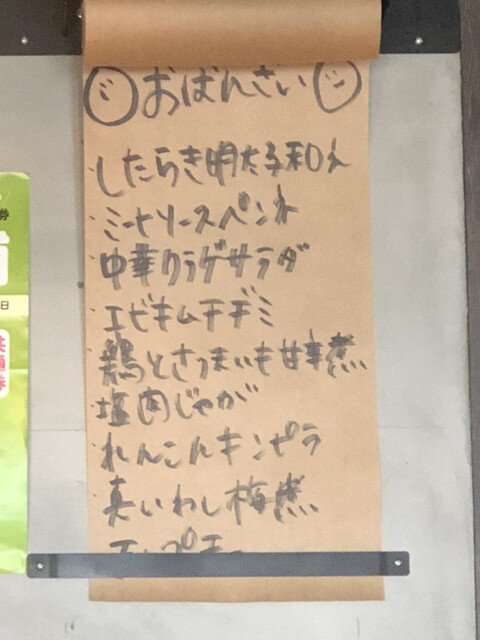 おばんざい
・したらき明太子和え
・ミートソースペンネ
・中華クラゲサラダ
・エビキムチヂミ
・鶏とさつまいも甘辛煮
・塩肉じゃが
・れんこんキンピラ
・真いわし梅煮
券
日